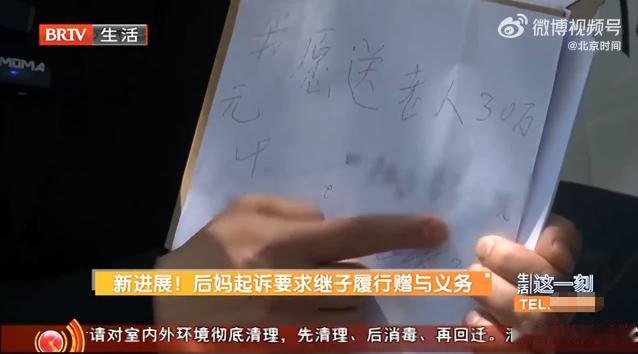 BRTV 生活
微博视频号
@北京时间
MOMA
我愿送老人30万
元
新进展！后妈起诉要求继子履行赠与义务
生活 这一刻
TEL.
请对室内外环境彻底清理，先清理、后消毒、再回迁。